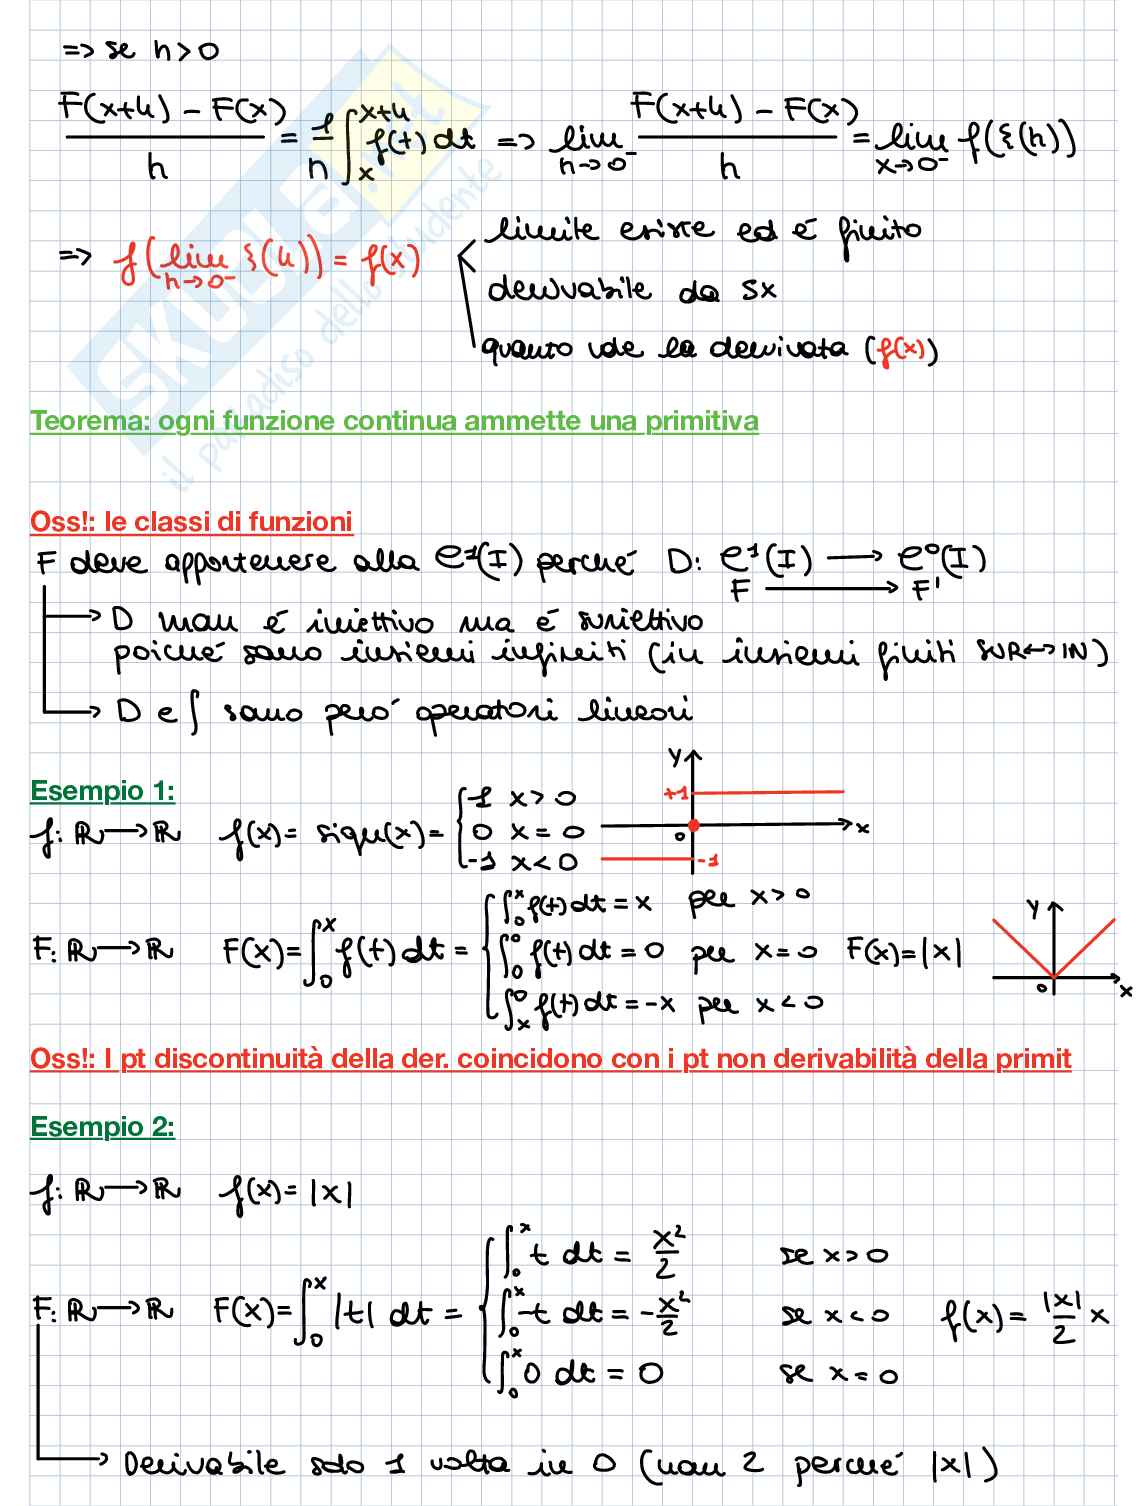 => se h>0
F(x+h) - F(x) / h = 1/h ∫_x^{x+h} f(t) dt => lim_{h→0^-} F(x+h) - F(x) / h = lim_{x→0^-} f(ξ(h))
=> f(lim_{h→0^-} ξ(h)) = f(x)
limite esiste ed é finito
derivabile da sx
quanto vale la derivata (f(x))
Teorema: ogni funzione continua ammette una primitiva
Oss!: le classi di funzioni
F deve appartenere alla C^1(I) perché D: C^1(I) → C^0(I)
F → F'
→ D non é iniettivo ma é suriettivo
poiché sono insiemi infiniti (in insiemi finiti SUR↔IN)
→ D e ∫ sono peró operatori lineari
Esempio 1:
f: ℝ → ℝ f(x) = sign(x) = { 1 x > 0
0 x = 0
-1 x < 0
y
+1
0
x
-1
F: ℝ → ℝ F(x) = ∫_0^x f(t) dt = { ∫_0^x f(t) dt = x per x > 0
∫_0^0 f(t) dt = 0 per x = 0
∫_x^0 f(t) dt = -x per x < 0
F(x) = |x|
y
0
x
Oss!: I pt discontinuità della der. coincidono con i pt non derivabilità della primit
Esempio 2:
f: ℝ → ℝ f(x) = |x|
F: ℝ → ℝ F(x) = ∫_0^x |t| dt = { ∫_0^x t dt = x²/2 se x > 0
∫_0^x -t dt = -x²/2 se x < 0
∫_0^x 0 dt = 0 se x = 0
f(x) = |x|/2 x
→ Derivabile solo 1 volta in 0 (non 2 perché |x|)